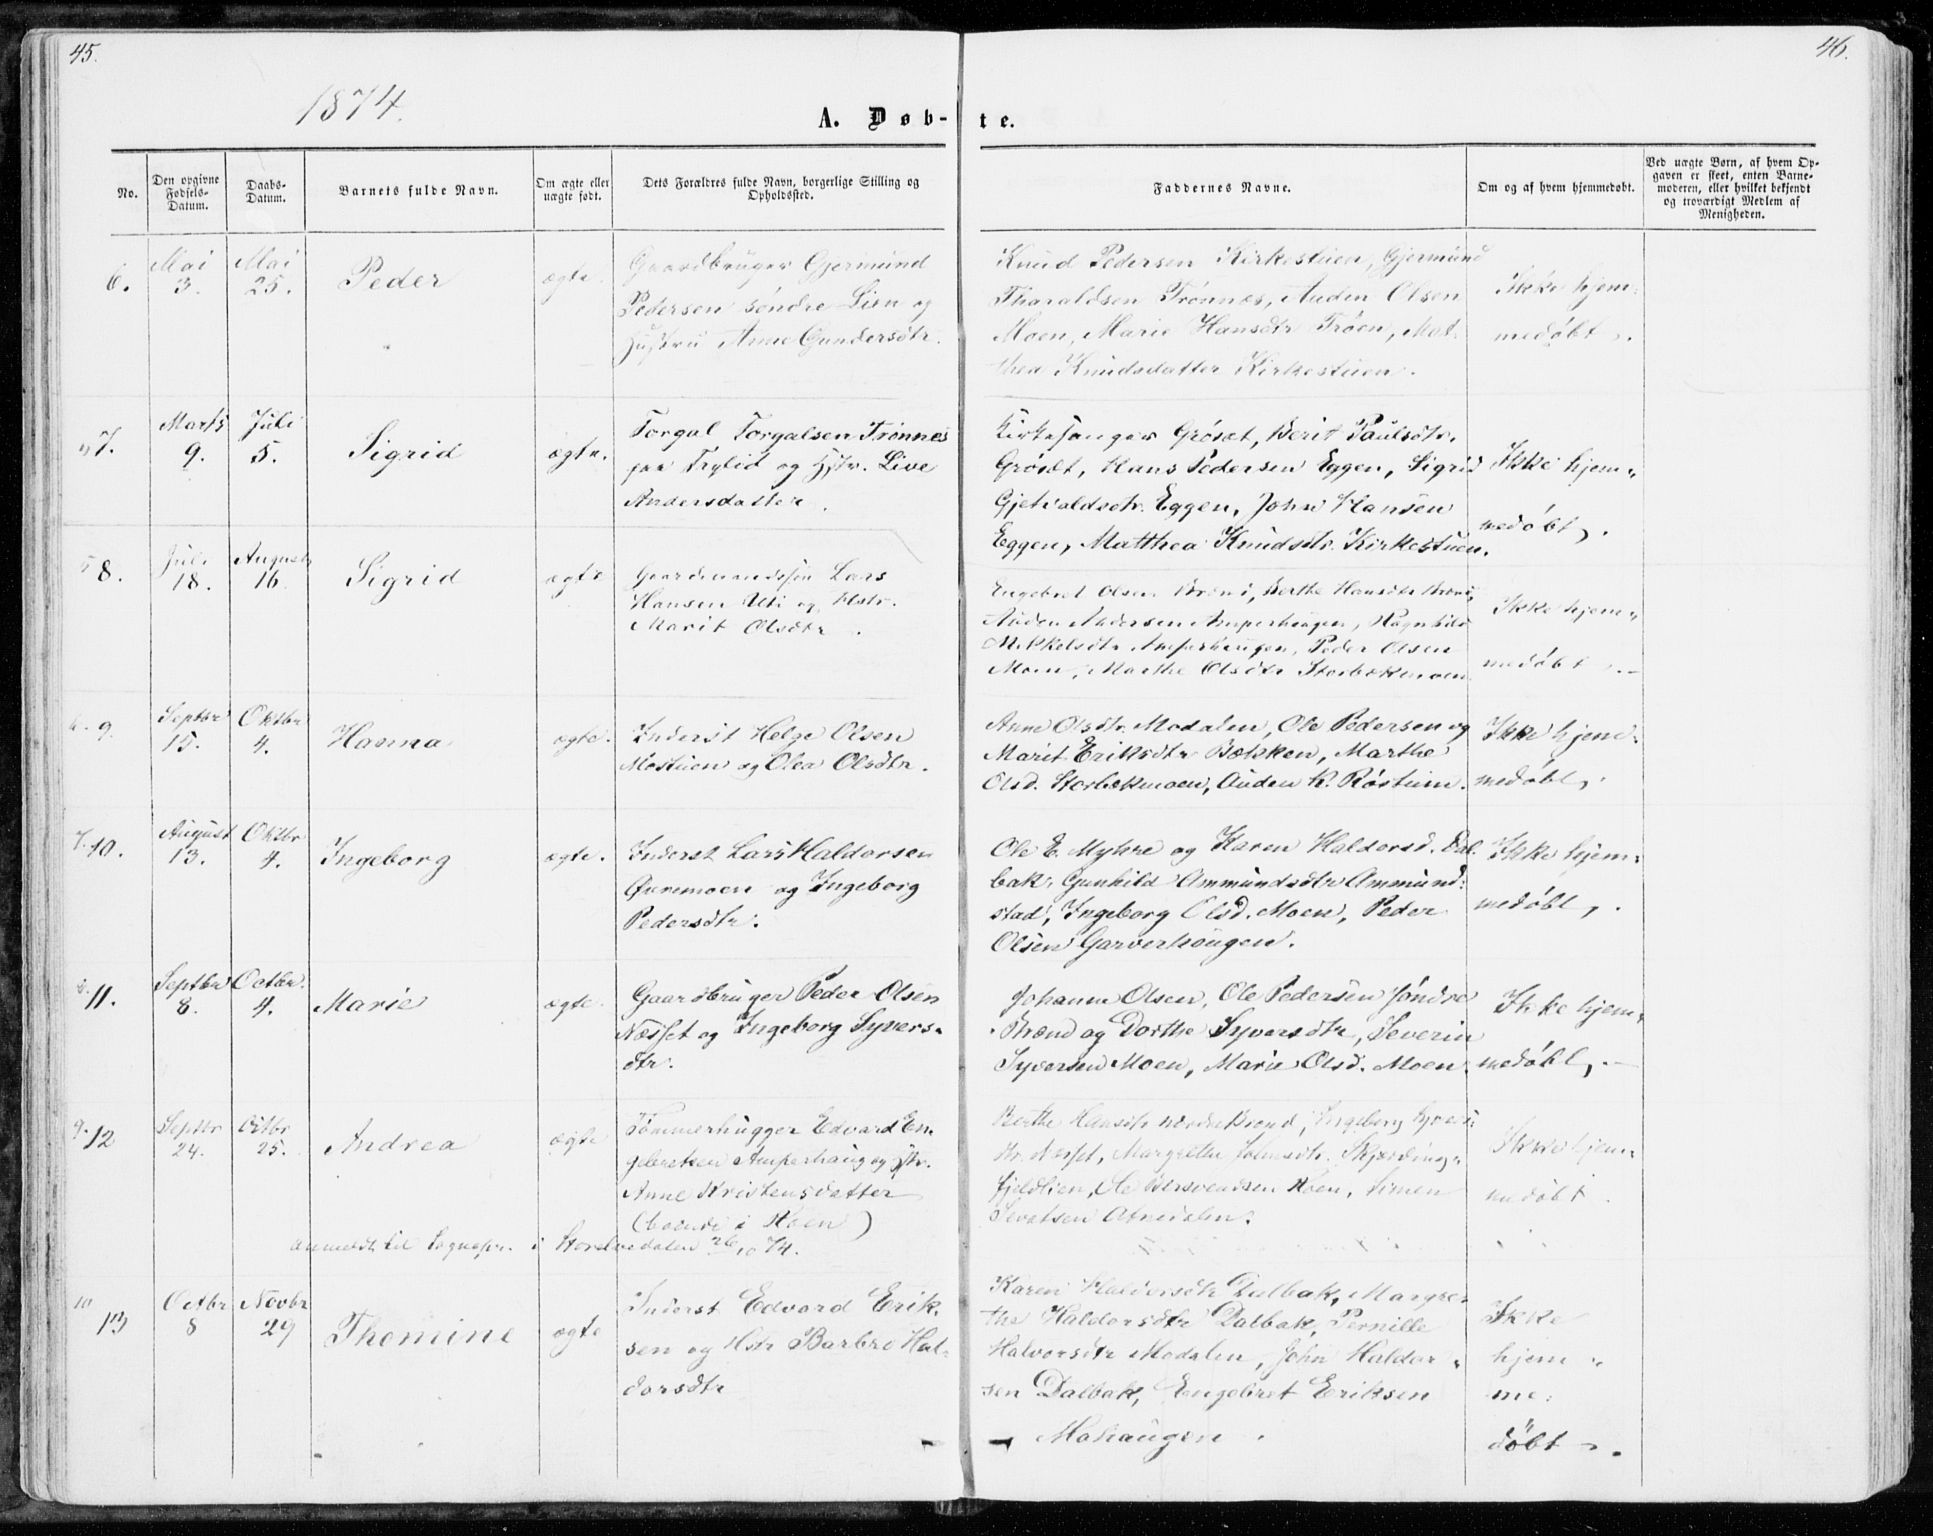 45.
46.
1874.
A. Døb-te.
No.
Den opgivne Fødsels-Datum.
Daabs-Datum.
Barnets fulde Navn.
Om ægte eller uægte født.
Dets Forældres fulde Navn, borgerlige Stilling og Opholdssted.
Faddernes Navne.
Om og af hvem hjemmedøbt.
Ved uægte Børn, af hvem Op-
gaven er skeet, enten Barne-
moderen, eller hvilket bekjendt
og troværdigt Medlem af
Menigheden.
6.
Mai 3.
Mai 25.
Peder
ægte.
Gaardbruger Gjermund
Pedersen søndre Lien og
Hustru Anne Gundersdtr.
Knud Pedersen Kirkestuen, Gjermund
Tharaldsen Trønnes, Auden Olsen
Moen, Marie Hansdtr Trøen, Mat-
thea Knudsdatter Kirkestuen.
Ikke hjem-
medøbt.
7.
Marts 9.
Juli 5.
Sigrid
ægte.
Torgal Torgalsen Trønnes
paa Trylid og Hstr. Live
Andersdatter.
Kirkesanger Grøset, Berit Paulsdtr.
Grøset, Hans Pedersen Eggen, Sigrid
Gjetvaldsdtr. Eggen, John Hansen
Eggen, Matthea Knudsdtr. Kirkestuen.
Ikke hjem-
medøbt.
8.
Juli 18.
August 16.
Sigrid
ægte
Gaardmandssøn Lars
Hansen Uti og Hstr.
Marit Olsdtr.
Engebret Olsen, Berthe Hansdtr
Auden Andersen Amperhaugen, Ragnhild
Mikkelsdtr Amperhaugen, Peder Olsen
Moen, Marthe Olsdtr Storbækmoen
Ikke hjem-
medøbt.
9.
Septbr 15.
Oktbr 4.
Hanna
ægte.
Inderst Helge Olsen
Mostuen og Olea Olsdtr.
Anne Olsdtr. Modalen, Ole Pedersen og
Marit Eriksdtr Bækken, Marthe
Olsd. Storbækmoen, Auden K. Røstuen.
Ikke hjem-
medøbt.
7. 10.
August 13.
Oktbr 4.
Ingeborg
ægte.
Inderst Lars Haldorsen
Øvremoen og Ingeborg
Pedersdtr.
Ole E. Myhre og Karen Haldorsd. Dal-
bak, Gunhild Ammundsdtr Ammund-
stad, Ingeborg Olsd. Moen, Peder
Olsen Garverhaugen.
Ikke hjem-
medøbt.
8. 11.
Septbr 8.
Octbr. 4.
Marie
ægte.
Gaardbruger Peder Olsen
Næsset og Ingeborg Syvers-
dtr.
Johanne Olsen, Ole Pedersen søndre
Strand og Dorthe Syversdtr, Severin
Syversen Moen, Marie Olsd. Moen
Ikke hjem-
medøbt.
9. 12
Septbr 24.
Octbr 25.
Andrea
ægte
Tømmerhugger Edvard En-
gebretsen Amperhaug og Hstr.
Anne Kristensdatter
(boende i Koen)
anmeldt til Sognepr. i Storelvedalen 26/10 74.
Berthe Hansdtr, Ingeborg Syvers-
dtr. Næsset, Margrethe Johnsdtr. Skjærding-
fjeldlien, Ole Bersvendsen Koen, Simen
Sevatsen Atnedalen.
Ikke hjem-
medøbt.
10
13
Octbr 8
Novbr 29
Thomine
ægte
Inderst Edvard Erik-
sen og Hstr Barbro Hal-
dorsdtr
Karen Haldorsdtr Dalbak, Margre-
the Haldorsdtr Dalbak, Pernille
Halvorsdtr Modalen, John Haldor-
sen Dalbak, Engebret Eriksen
Mohaugen.
Ikke
hjem-
me-
døbt.